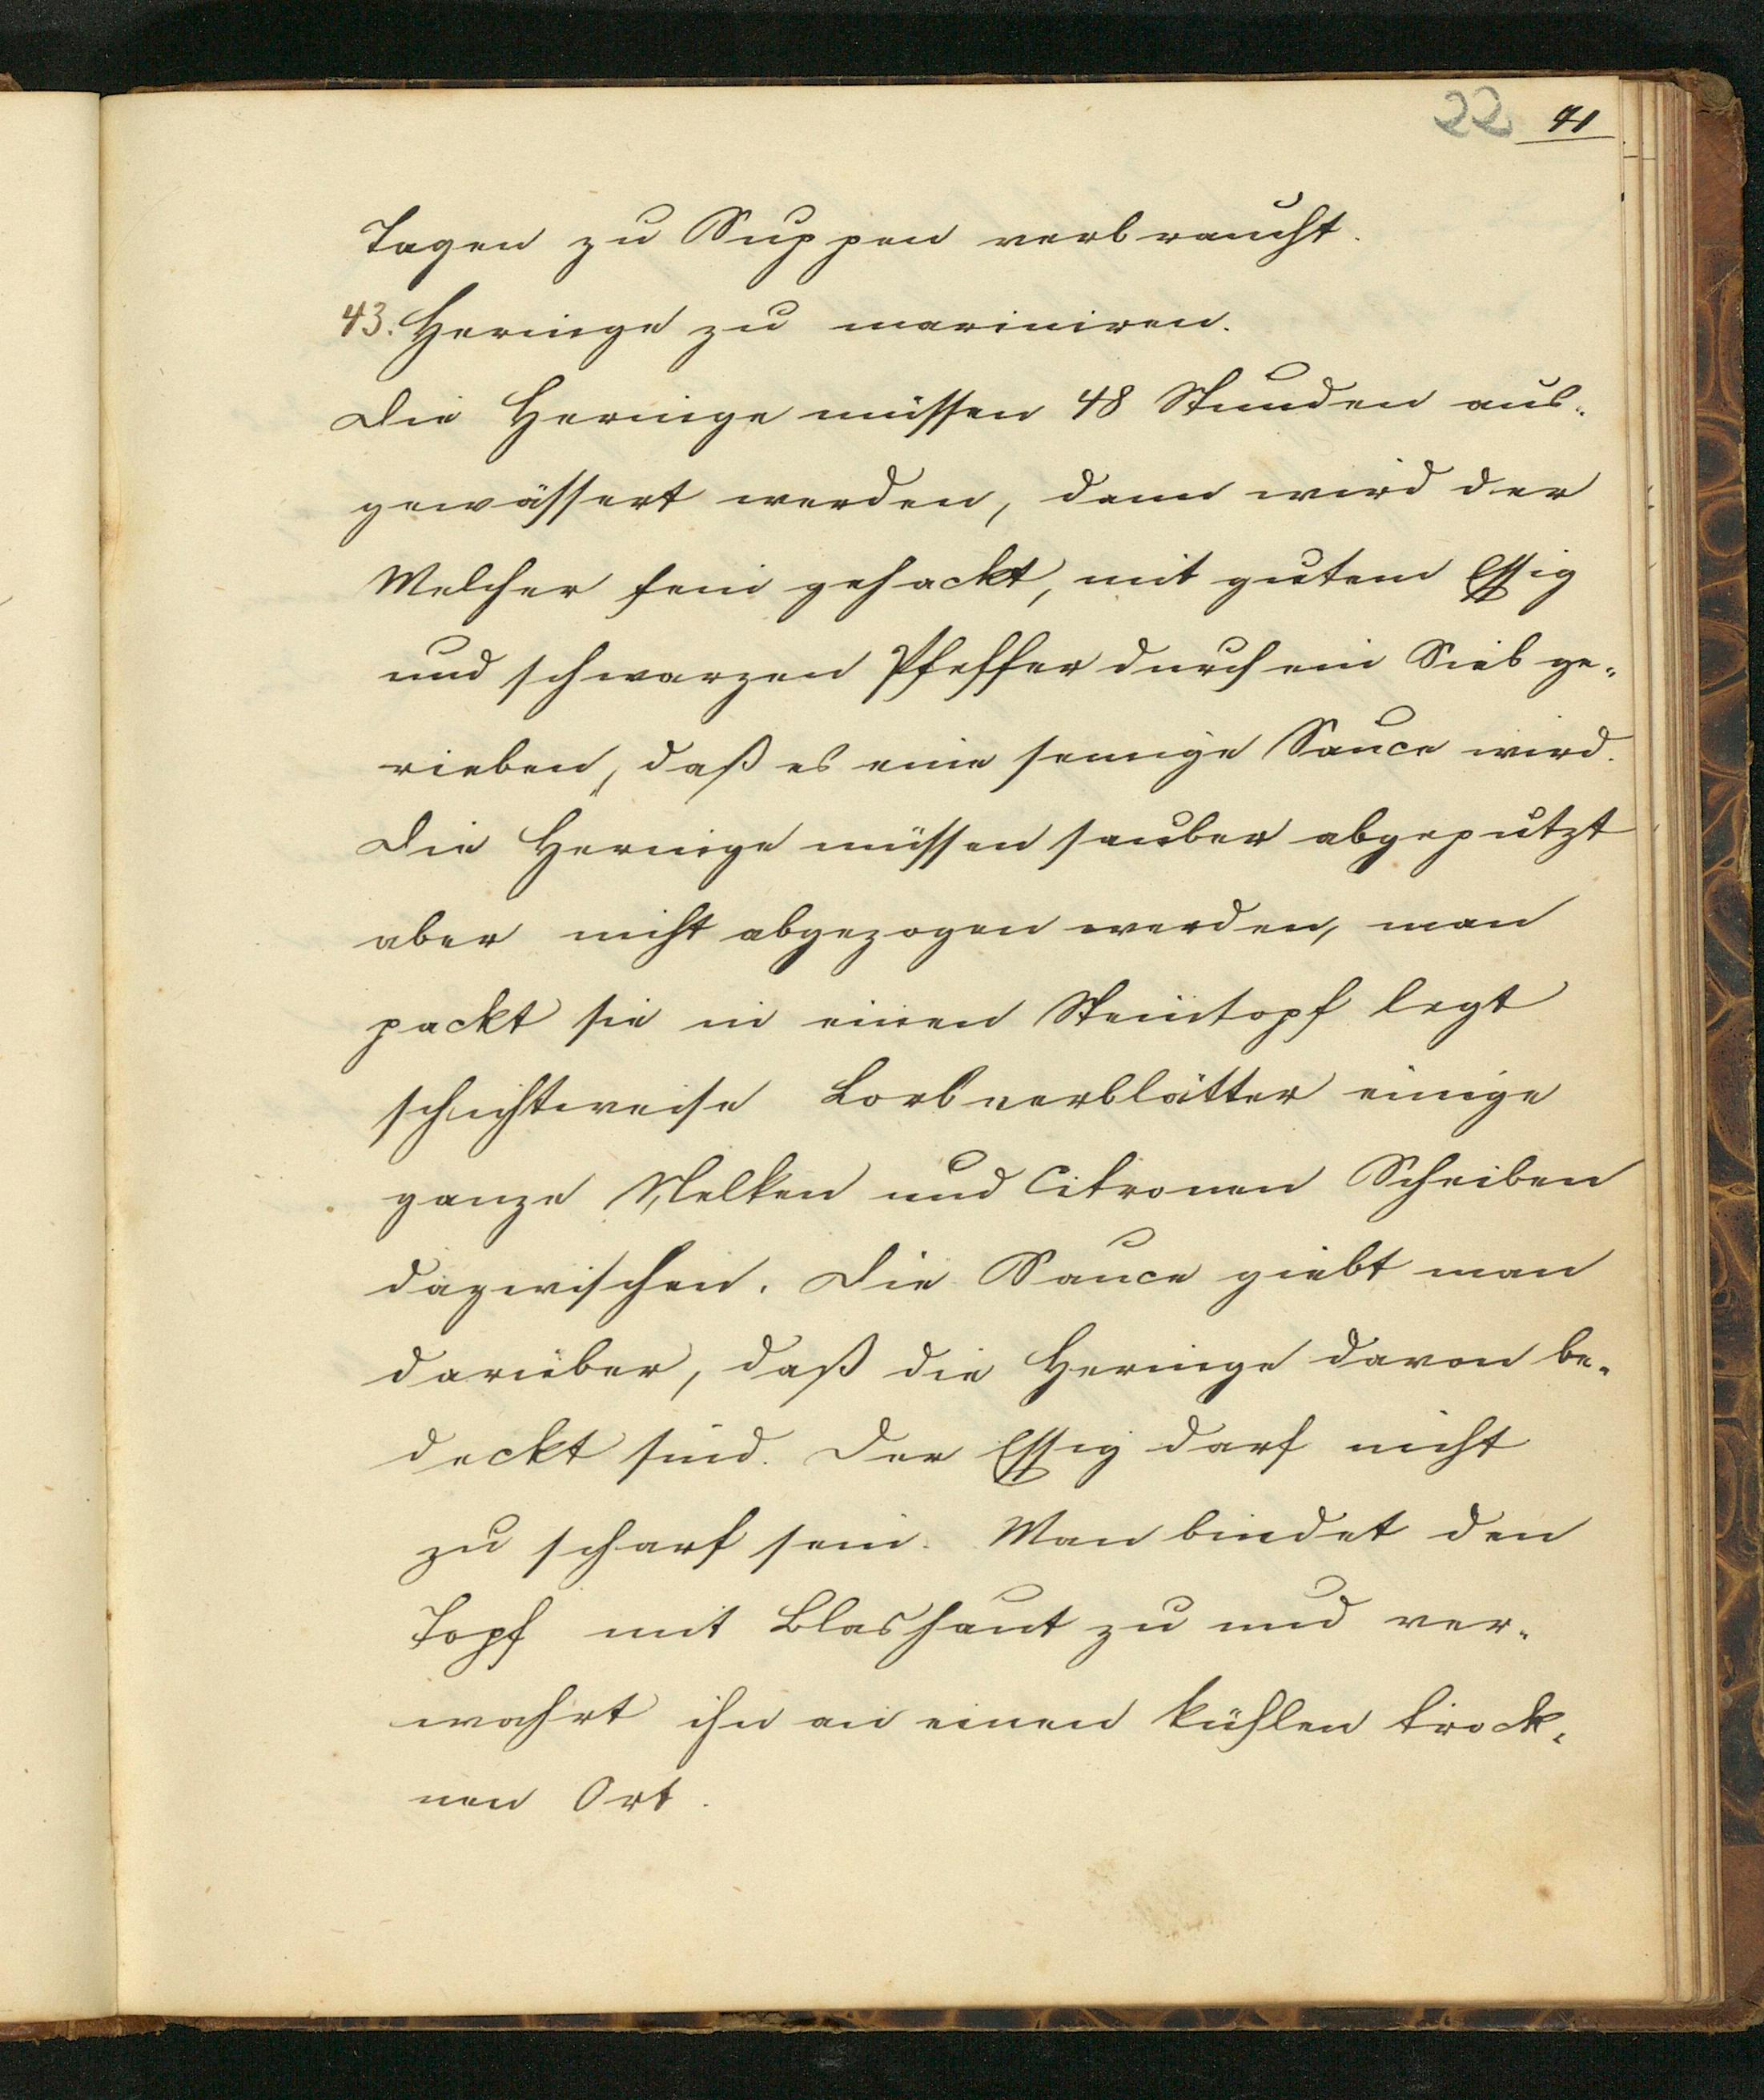 22 41
Tagen zu Suppen verbraucht.
43. Heringe zu mariniren.
Die Heringe müssen 48 Stunden aus-
gewässert werden, dann wird der
Melcher fein gehackt, mit gutem Essig
und schwarzen Pfeffer durch ein Sieb ge-
rieben, daß es eine semige Sauce wird.
Die Heringe müssen sauber abgeputzt
aber nicht abgezogen werden, man
packt sie in einen Steintopf legt
schichtweise Lorbeerblätter einige
ganze Nelken und Citronen Scheiben
dazwischen. Die Sauce giebt man
darüber, daß die Heringe davon be-
deckt sind. Der Essig darf nicht
zu scharf sein. Man bindet den
Topf mit Blashaut zu und ver-
wahrt ihn an einen kühlen trock-
nen Ort.